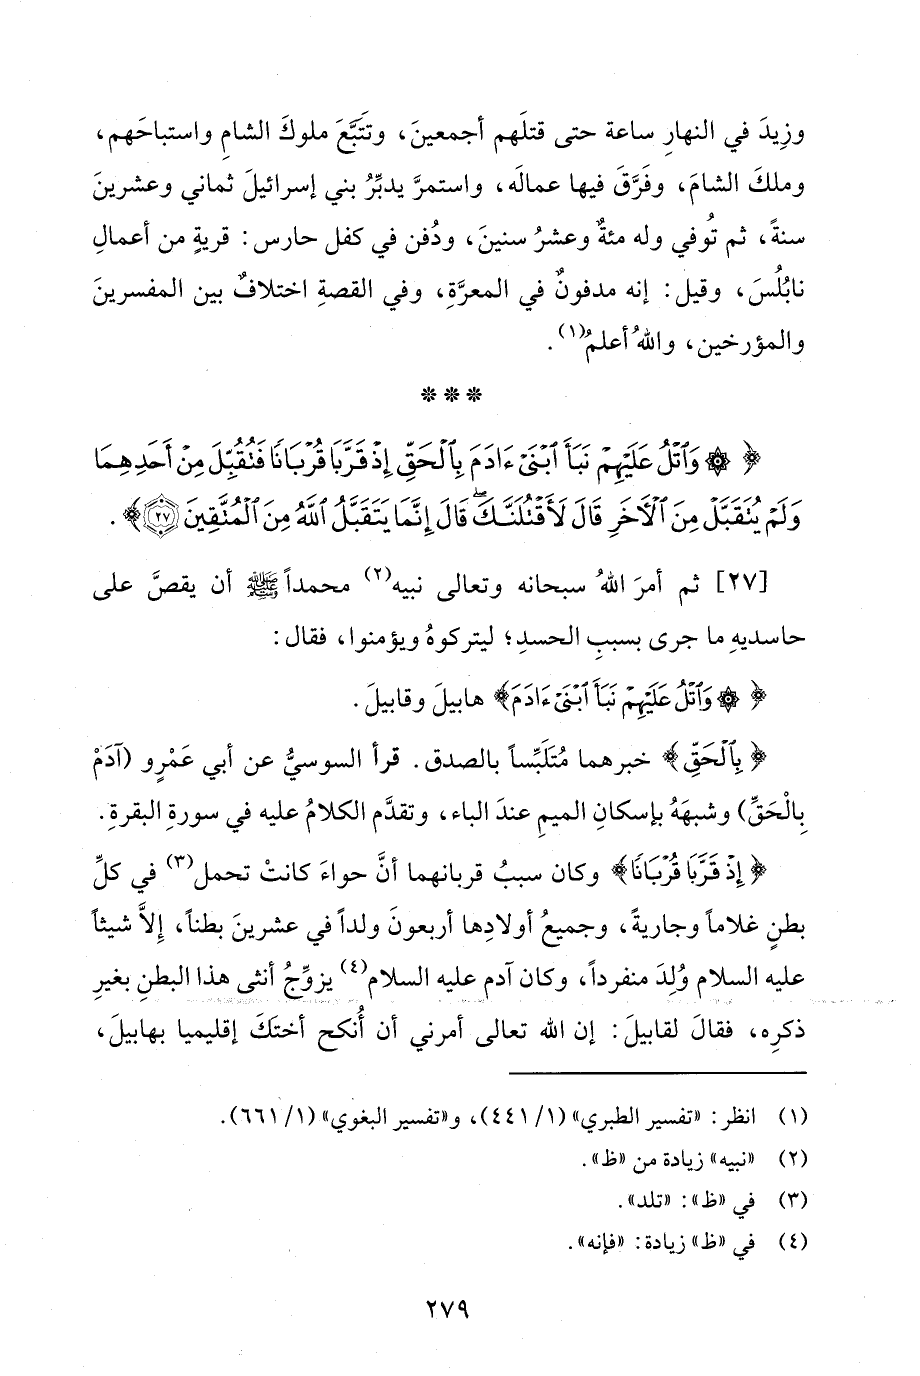 وزِيدَ في النهارِ ساعة حتى قتلَهم أجمعينَ، وتتَبَّعَ ملوكَ الشامِ واستباحَهم،
وملكَ الشامَ، وفَرَّقَ فيها عمالَه، واستمرَّ يدبِّرُ بني إسرائيلَ ثماني وعشرينَ
سنةً، ثم تُوفي وله مئةٌ وعشرُ سنينَ، ودُفن في كفل حارس: قريةٍ من أعمالِ
نابُلُسَ، وقيل: إنه مدفونٌ في المعرَّةِ، وفي القصةِ اختلافٌ بين المفسرينَ
والمؤرخين، واللهُ أعلمُ(١).
***
﴿ ۞ وَٱتْلُ عَلَيْهِمْ نَبَأَ ٱبْنَىْ ءَادَمَ بِٱلْحَقِّ إِذْ قَرَّبَا قُرْبَانًا فَتُقُبِّلَ مِنْ أَحَدِهِمَا
وَلَمْ يُتَقَبَّلْ مِنَ ٱلْأَخَرِ قَالَ لَأَقْتُلَنَّكَ ۖ قَالَ إِنَّمَا يَتَقَبَّلُ ٱللَّهُ مِنَ ٱلْمُتَّقِينَ ٢٧﴾.
[٢٧] ثم أمرَ اللهُ سبحانه وتعالى نبيه(٢) محمداً ﷺ أن يقصَّ على
حاسديهِ ما جرى بسببِ الحسدِ؛ ليتركوهُ ويؤمنوا، فقال:
﴿ ۞ وَٱتْلُ عَلَيْهِمْ نَبَأَ ٱبْنَىْ ءَادَمَ﴾ هابيلَ وقابيلَ.
﴿ بِٱلْحَقِّ﴾ خبرهما مُتَلَبِّساً بالصدق. قرأ السوسيُّ عن أبي عَمْرٍو (آدَمْ
بِالْحَقِّ) وشبهَهُ بإسكانِ الميمِ عندَ الباء، وتقدَّم الكلامُ عليه في سورةِ البقرةِ.
﴿ إِذْ قَرَّبَا قُرْبَانًا﴾ وكان سببُ قربانهما أنَّ حواءَ كانتْ تحمل(٣) في كلِّ
بطنٍ غلاماً وجاريةً، وجميعُ أولادِها أربعونَ ولداً في عشرينَ بطناً، إلاَّ شيثاً
عليه السلام وُلِدَ منفرداً، وكان آدم عليه السلام(٤) يزوِّجُ أنثى هذا البطنِ بغيرِ
ذكرِه، فقالَ لقابيلَ: إن الله تعالى أمرني أن أُنكح أختَكَ إقليميا بهابيلَ،
(١) انظر: «تفسير الطبري» (١/ ٤٤١)، و«تفسير البغوي» (١/ ٦٦١).
(٢) «نبيه» زيادة من «ظ».
(٣) في «ظ»: «تلد».
(٤) في «ظ» زيادة: «فإنه».
٢٧٩